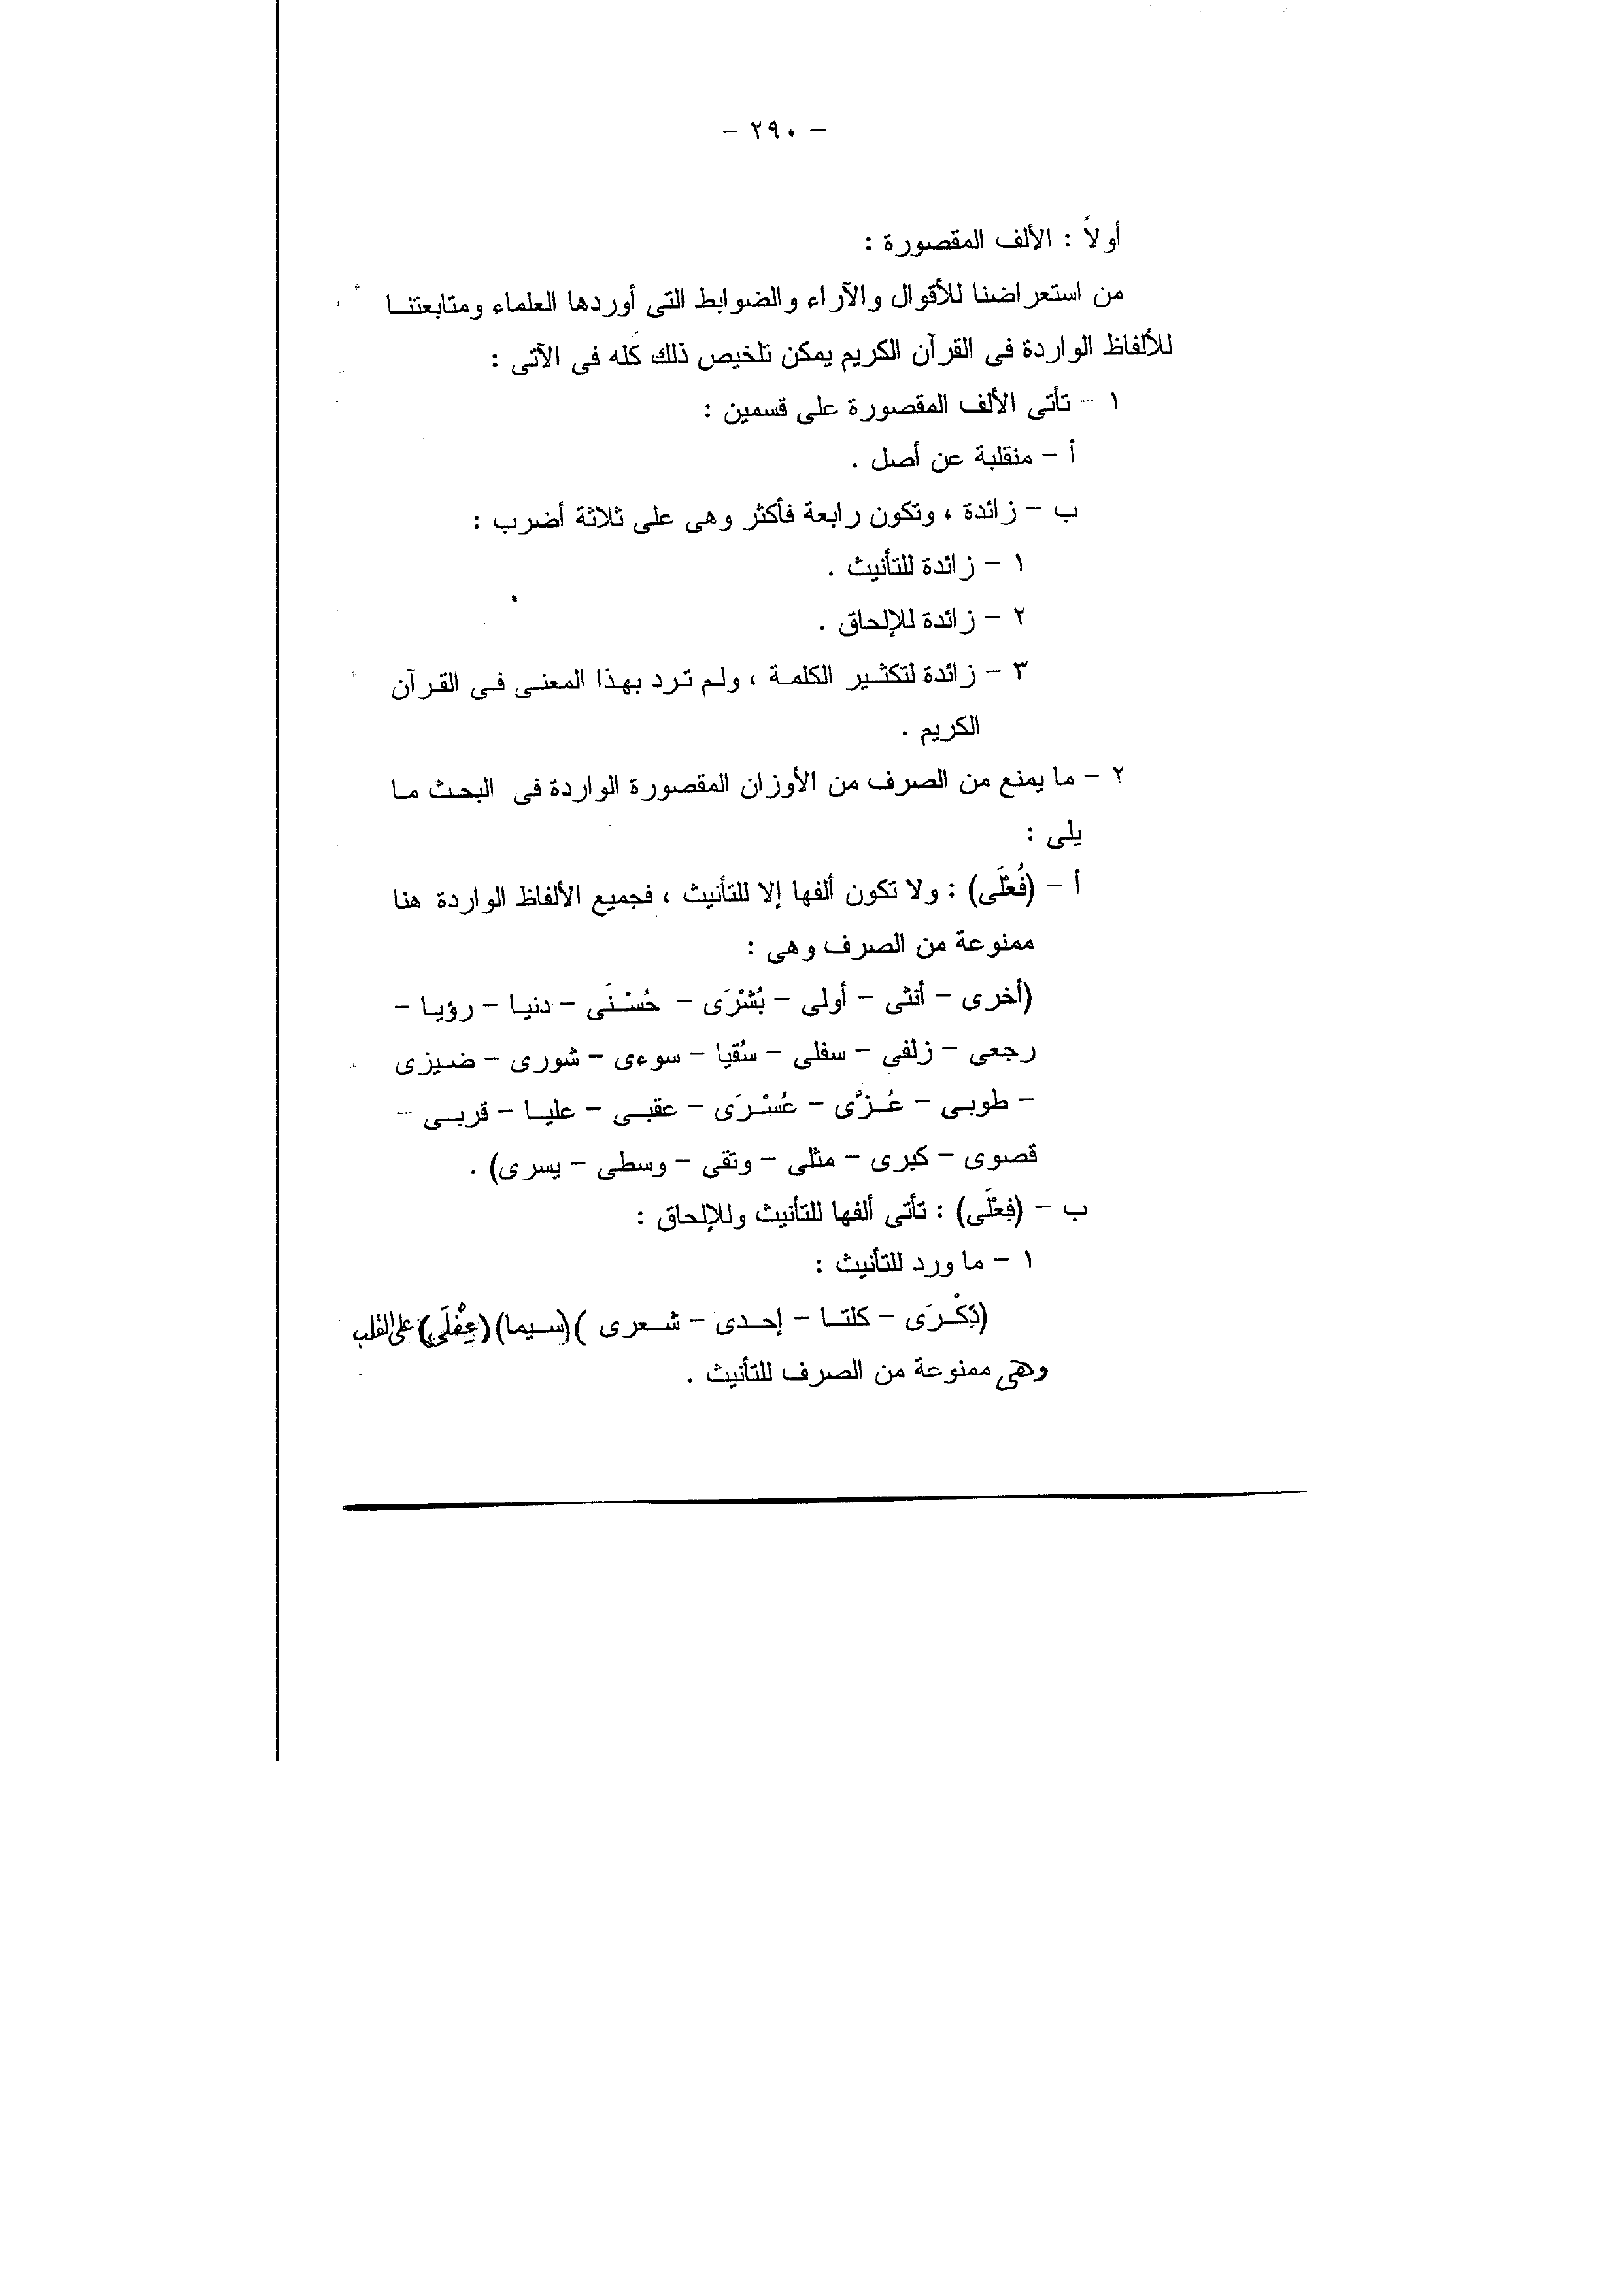 - ٢٩٠ -
أولاً : الألف المقصورة :
من استعراضنا للأقوال والآراء والضوابط التى أوردها العلماء ومتابعتنا
للألفاظ الواردة فى القرآن الكريم يمكن تلخيص ذلك كله فى الآتى :
١ - تأتى الألف المقصورة على قسمين :
أ - منقلبة عن أصل .
ب - زائدة ، وتكون رابعة فأكثر وهى على ثلاثة أضرب :
١ - زائدة للتأنيث .
٢ - زائدة للإلحاق .
٣ - زائدة لتكثير الكلمة ، ولم ترد بهذا المعنى فى القرآن
الكريم .
٢ - ما يمنع من الصرف من الأوزان المقصورة الواردة فى البحث ما
يلى :
أ - (فُعْلَى) : ولا تكون ألفها إلا للتأنيث ، فجميع الألفاظ الواردة هنا
ممنوعة من الصرف وهى :
(أخرى - أنثى - أولى - بُشْرَى - حُسْنَى - دنيا - رؤيا -
رجعى - زلفى - سفلى - سُقيا - سوءى - شورى - ضيزى
- طوبى - عُزَّى - عُسْرَى - عقبى - عليا - قربى -
قصوى - كبرى - مثلى - وثقى - وسطى - يسرى) .
ب - (فِعْلَى) : تأتى ألفها للتأنيث وللإلحاق :
١ - ما ورد للتأنيث :
(ذِكْرَى - كلتا - إحدى - شعرى )(سيما) (عِفْلَى) على القلب
وهى ممنوعة من الصرف للتأنيث .